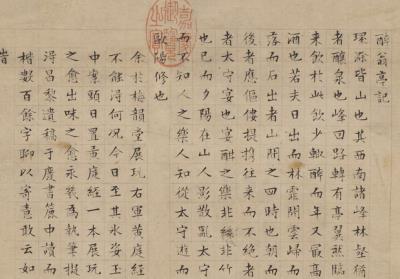 醉翁亭記
環滁皆山也其西南諸峰林壑
者釀泉也峰回路轉有亭翼然臨
來飲於此飲少輒醉而年又最高
酒也若夫日出而林霏開雲歸而
落而石出者山間之四時也朝而
後者應傴僂提攜往來而不絕者
者太守宴也宴酣之樂非絲非竹
也已而夕陽在山人影散亂太守
而不知人之樂人知從太守遊而
歐陽修也
余於梅韻堂展玩右軍黃庭經
不能淂何況今日至其
中日置黃庭經一本展玩
之愈出味之愈永為執筆
淂昌黎遺稿于廢書簏中讀而
楷數百餘字聊以寄意敢云如
旹